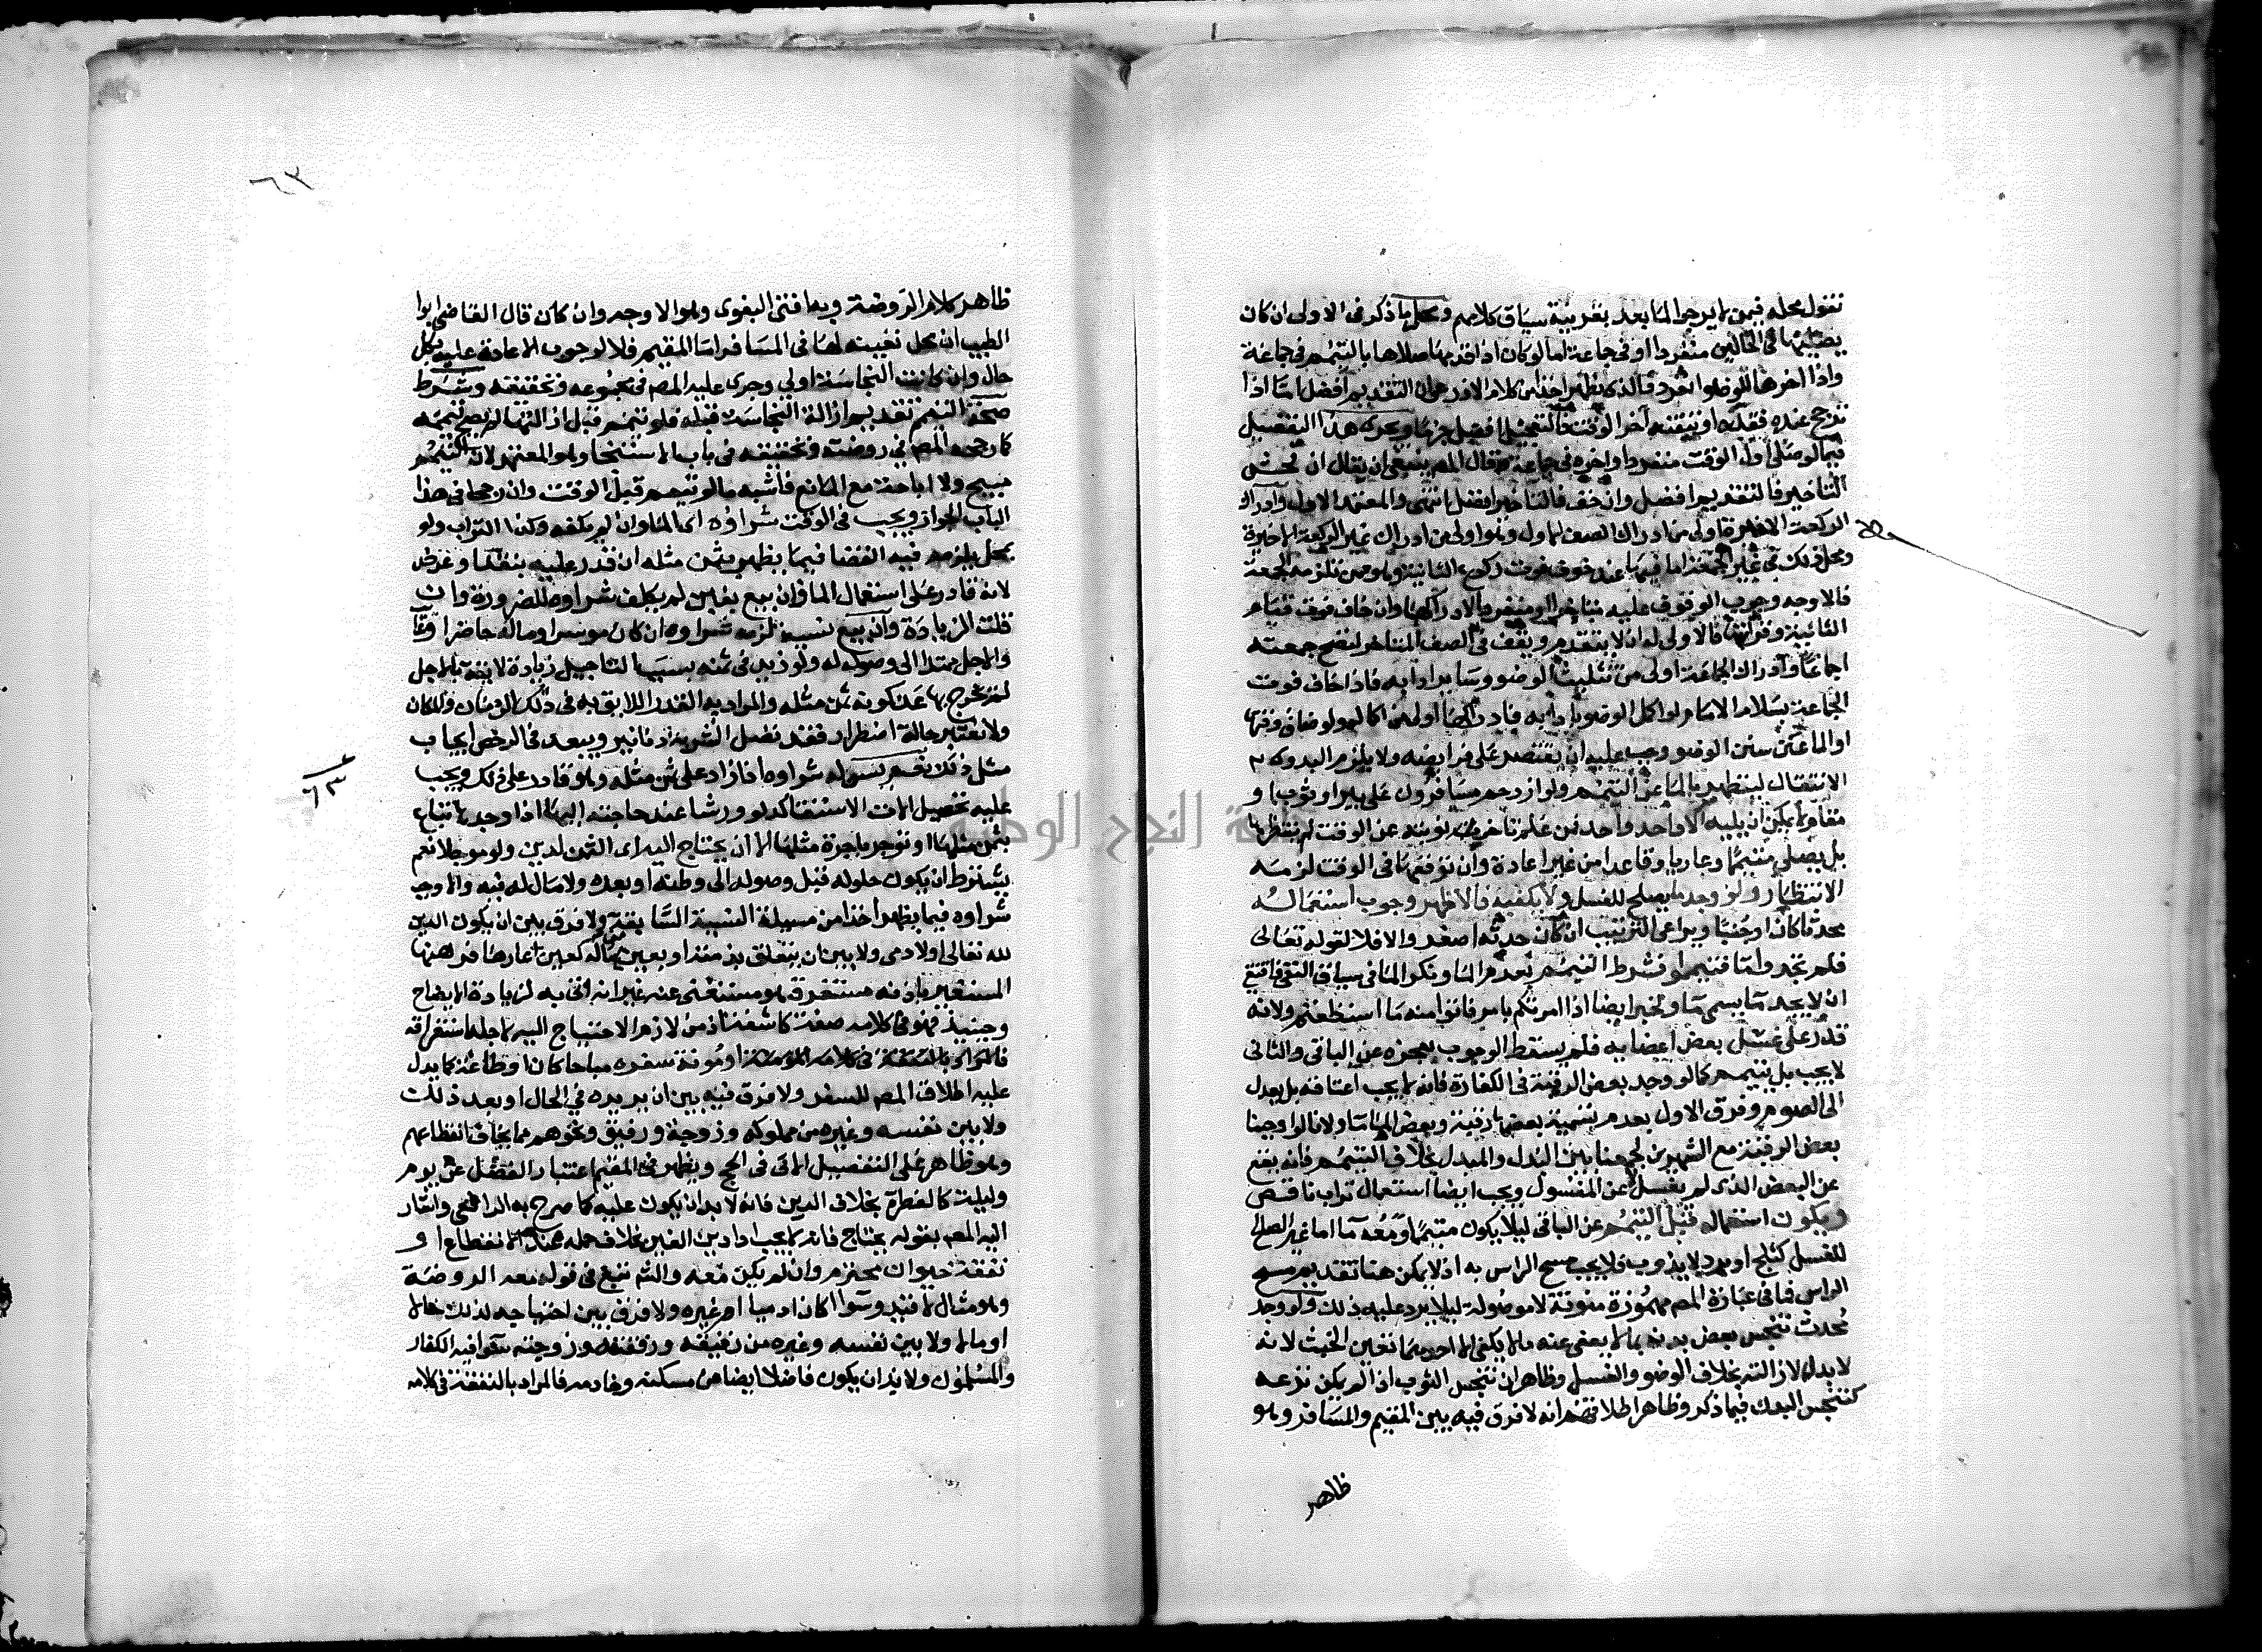 نقول محله فيمن لا يرجو الماء بعد بقرينة سياق كلامهم ومحل ما ذكر في الاولى ان كان
يصليها في الحالين منفردا او في جماعة اما لو كان اذا قدمها صلاها بالتيمم في جماعة
واذا اخرها للوضوء انفرد فالذي يظهر اخذا من كلام الاذرعي ان التقديم افضل اما اذا
ترجح عنده فقده او تيقنه آخر الوقت فالتعجيل افضل جزما ويجري هذا التفصيل
فيما لو صلى اول الوقت منفردا واخره في جماعة قال المص ينبغي ان يقال ان فحش
التاخير فالتقديم افضل وان خف فالتاخير افضل انتهى والمعتمد الاول وادراك
الركعة الاخيرة اولى من ادراك الصف الاول وهو اولى من ادراك غير الركعة الاخيرة
ومحل ذلك في غير الجمعة اما فيها عند خوف فوت ركوع الثانية وهو ممن تلزمه الجمعة
فالاوجه وجوب الوقوف عليه متاخرا او منفردا لادراكها وان خاف فوت قيام
الثانية وقراتها فالاولى له ان لا يتقدم ويقف في الصف المتاخر لتصح جمعته
اجماعا وادراك الجماعة اولى من تثليث الوضوء وسائر ادابه فاذا خاف فوت
الجماعة بسلام الامام لو اكمل الوضوء بادابه فادراكها اولى من اكماله ولو ضاق وقتها
او الماء عن سنن الوضوء وجب عليه ان يقتصر على فرايضه ولا يلزم البدوي
الانتقال ليتطهر بالماء عن التيمم ولو ازدحم مسافرون على بير او ثوب او
مقام لا يمكن ان يليه الا واحد واحد فمن علم تاخر نوبته عن الوقت لم ينتظرها
بل يصلي متيمما وعاريا وقاعدا من غير اعادة وان توقعها في الوقت لزمه
الانتظار ولو وجد ما يصلح للغسل ولا يكفيه فالاظهر وجوب استعماله
محدثا كان او جنبا ويراعي الترتيب ان كان حدثه اصغر والا فلا لقوله تعالى
فلم تجدوا ماء فتيمموا فشرط التيمم بعدم الماء ونكر الماء في سياق النفي فاقتضى
ان لا يجد ما يسمى ماء ولخبر ايضا اذا امرتكم بامر فاتوا منه ما استطعتم ولانه
قدر على غسل بعض اعضايه فلم يسقط الوجوب بعجزه عن الباقي والثاني
لا يجب بل يتيمم كما لو وجد بعض الرقبة في الكفارة فانه لا يجب اعتاقه بل يعدل
الى الصوم وفرق الاول بعدم تسمية بعض الرقبة رقبة وبعض الماء ماء ولانا لو اوجبنا
بعض الرقبة مع الشهرين لجمعنا بين البدل والمبدل بخلاف التيمم فانه يقع
عن البعض الذي لم يغسل لا عن المغسول ويجب ايضا استعمال تراب ناقص
ويكون استعماله قبل التيمم عن الباقي ليلا يكون متيمما ومعه ماء اما غير الصالح
للغسل كثلج او برد لا يذوب فلا يجب مسح الراس به اذ لا يمكن هنا تقديم مسح
الراس فما في عبارة المص مهموزة منونة لا موصولة ليلا يرد عليه ذلك ولو وجد
محدث تنجس بعض بدنه بما لا يعفى عنه ما لا يكفي الا احدهما تعين الخبث لانه
لا بدل لازالته بخلاف الوضوء والغسل وظاهر ان تنجس الثوب اذا لم يكن نزعه
كتنجس البدن فيما ذكر وظاهر اطلاقهم انه لا فرق فيه بين المقيم والمسافر وهو
ظاهر
٦٢
ظاهر كلام الروضة وبه افتى البغوي وهو الاوجه وان كان قال القاضي ابو
الطيب ان محل تعيينه لها في المسافر اما المقيم فلا لوجوب الاعادة عليه بكل
حال وان كانت النجاسة اولى وجرى عليه المص في مجموعه وتحقيقه وشرط
صحة التيمم تقديم ازالة النجاسة قبله فلو تيمم قبل ازالتها لم يصح تيممه
كما رجحه المص في روضته وتحقيقه في باب الاستنجا وهو المعتمد لان التيمم
مبيح ولا اباحة مع المانع فاشبه ما لو تيمم قبل الوقت وان رجحا في هذا
الباب الجواز ويجب في الوقت شراؤه اي الماء وان لم يكفه وكذا التراب ولو
بمحل يلزمه فيه القضا فيما يظهر بثمن مثله ان قدر عليه بنقد او عرض
لانه قادر على استعمال الماء فان بيع بغبن لم يكلف شراوه للضرورة وان
قلت الزيادة وان بيع نسية لزمه شراوه ان كان موسرا وماله حاضرا او غايبا
والاجل ممتدا الى وصوله له ولو زيد في ثمنه بسبب التاجيل زيادة لايقة بالاجل
لم تخرج بها عن كونه ثمن مثله والمراد به القدر اللايق به في ذلك الزمان والمكان
ولا تعتبر حالة اضطرار فقد تصل الشربة دنانير ويبعد في الرخص ايجاب
مثل ذلك نعم يسن له شراوه اذا زاد على ثمن مثله وهو قادر على ذلك ويجب
عليه تحصيل الات الاستقا كدلو ورشا عند حاجته اليها اذا وجدها تباع
بثمن مثلها او توجر باجرة مثلها الا ان يحتاج اليه اي الثمن لدين ولو موجلا نعم
يشترط ان يكون حلوله قبل وصوله الى وطنه او بعده ولا مال له فيه والا وجب
شراوه فيما يظهر اخذا من مسيلة النسية السابقة ولا فرق بين ان يكون الدين
لله تعالى او لادمي ولا بين ان يتعلق بذمته او بعين ماله كعين اعارها فرهنها
المستعير باذنه مستغرق هو مستغنى عنه غير انه اتى به لزيادة الايضاح
وحينيذ فهو في كلامه صفة كاشفة اذ من لازم الاحتياج اليه لاجله استغراقه
فالمراد بالنفقة في كلامه المؤنة او مونة سفره مباحا كان او طاعة كما يدل
عليه اطلاق المص للسفر ولا فرق فيه بين ان يريده في الحال او بعد ذلك
ولا بين نفسه وغيره من مملوكه وزوجة ورفيق ونحوهم مما يخاف انقطاعهم
وهو ظاهر على التفصيل الاتي في الحج ويظهر في المقيم اعتبار الفضل عن يوم
وليلة كالفطرة بخلاف الدين فانه لا بد ان يكون عليه كما صرح به الرافعي واشار
اليه المص بقوله يحتاج فانه لا يجب ادا دين الغير بخلاف حمله عند الانقطاع او
نفقة حيوان محترم وان لم يكن معه والشم تبع في قوله معه الروضة
وهو مثال لا قيد وسوا اكان ادميا ام غيره ولا فرق بين احتياجه لذلك حالا
او مالا ولا بين نفسه وغيره من رقيقه ورفقته وزوجته سوا فيه الكفار
والمسلمون ولا بد ان يكون فاضلا ايضا من مسكنه وخادمه فالمراد بالنفقة في كلامه